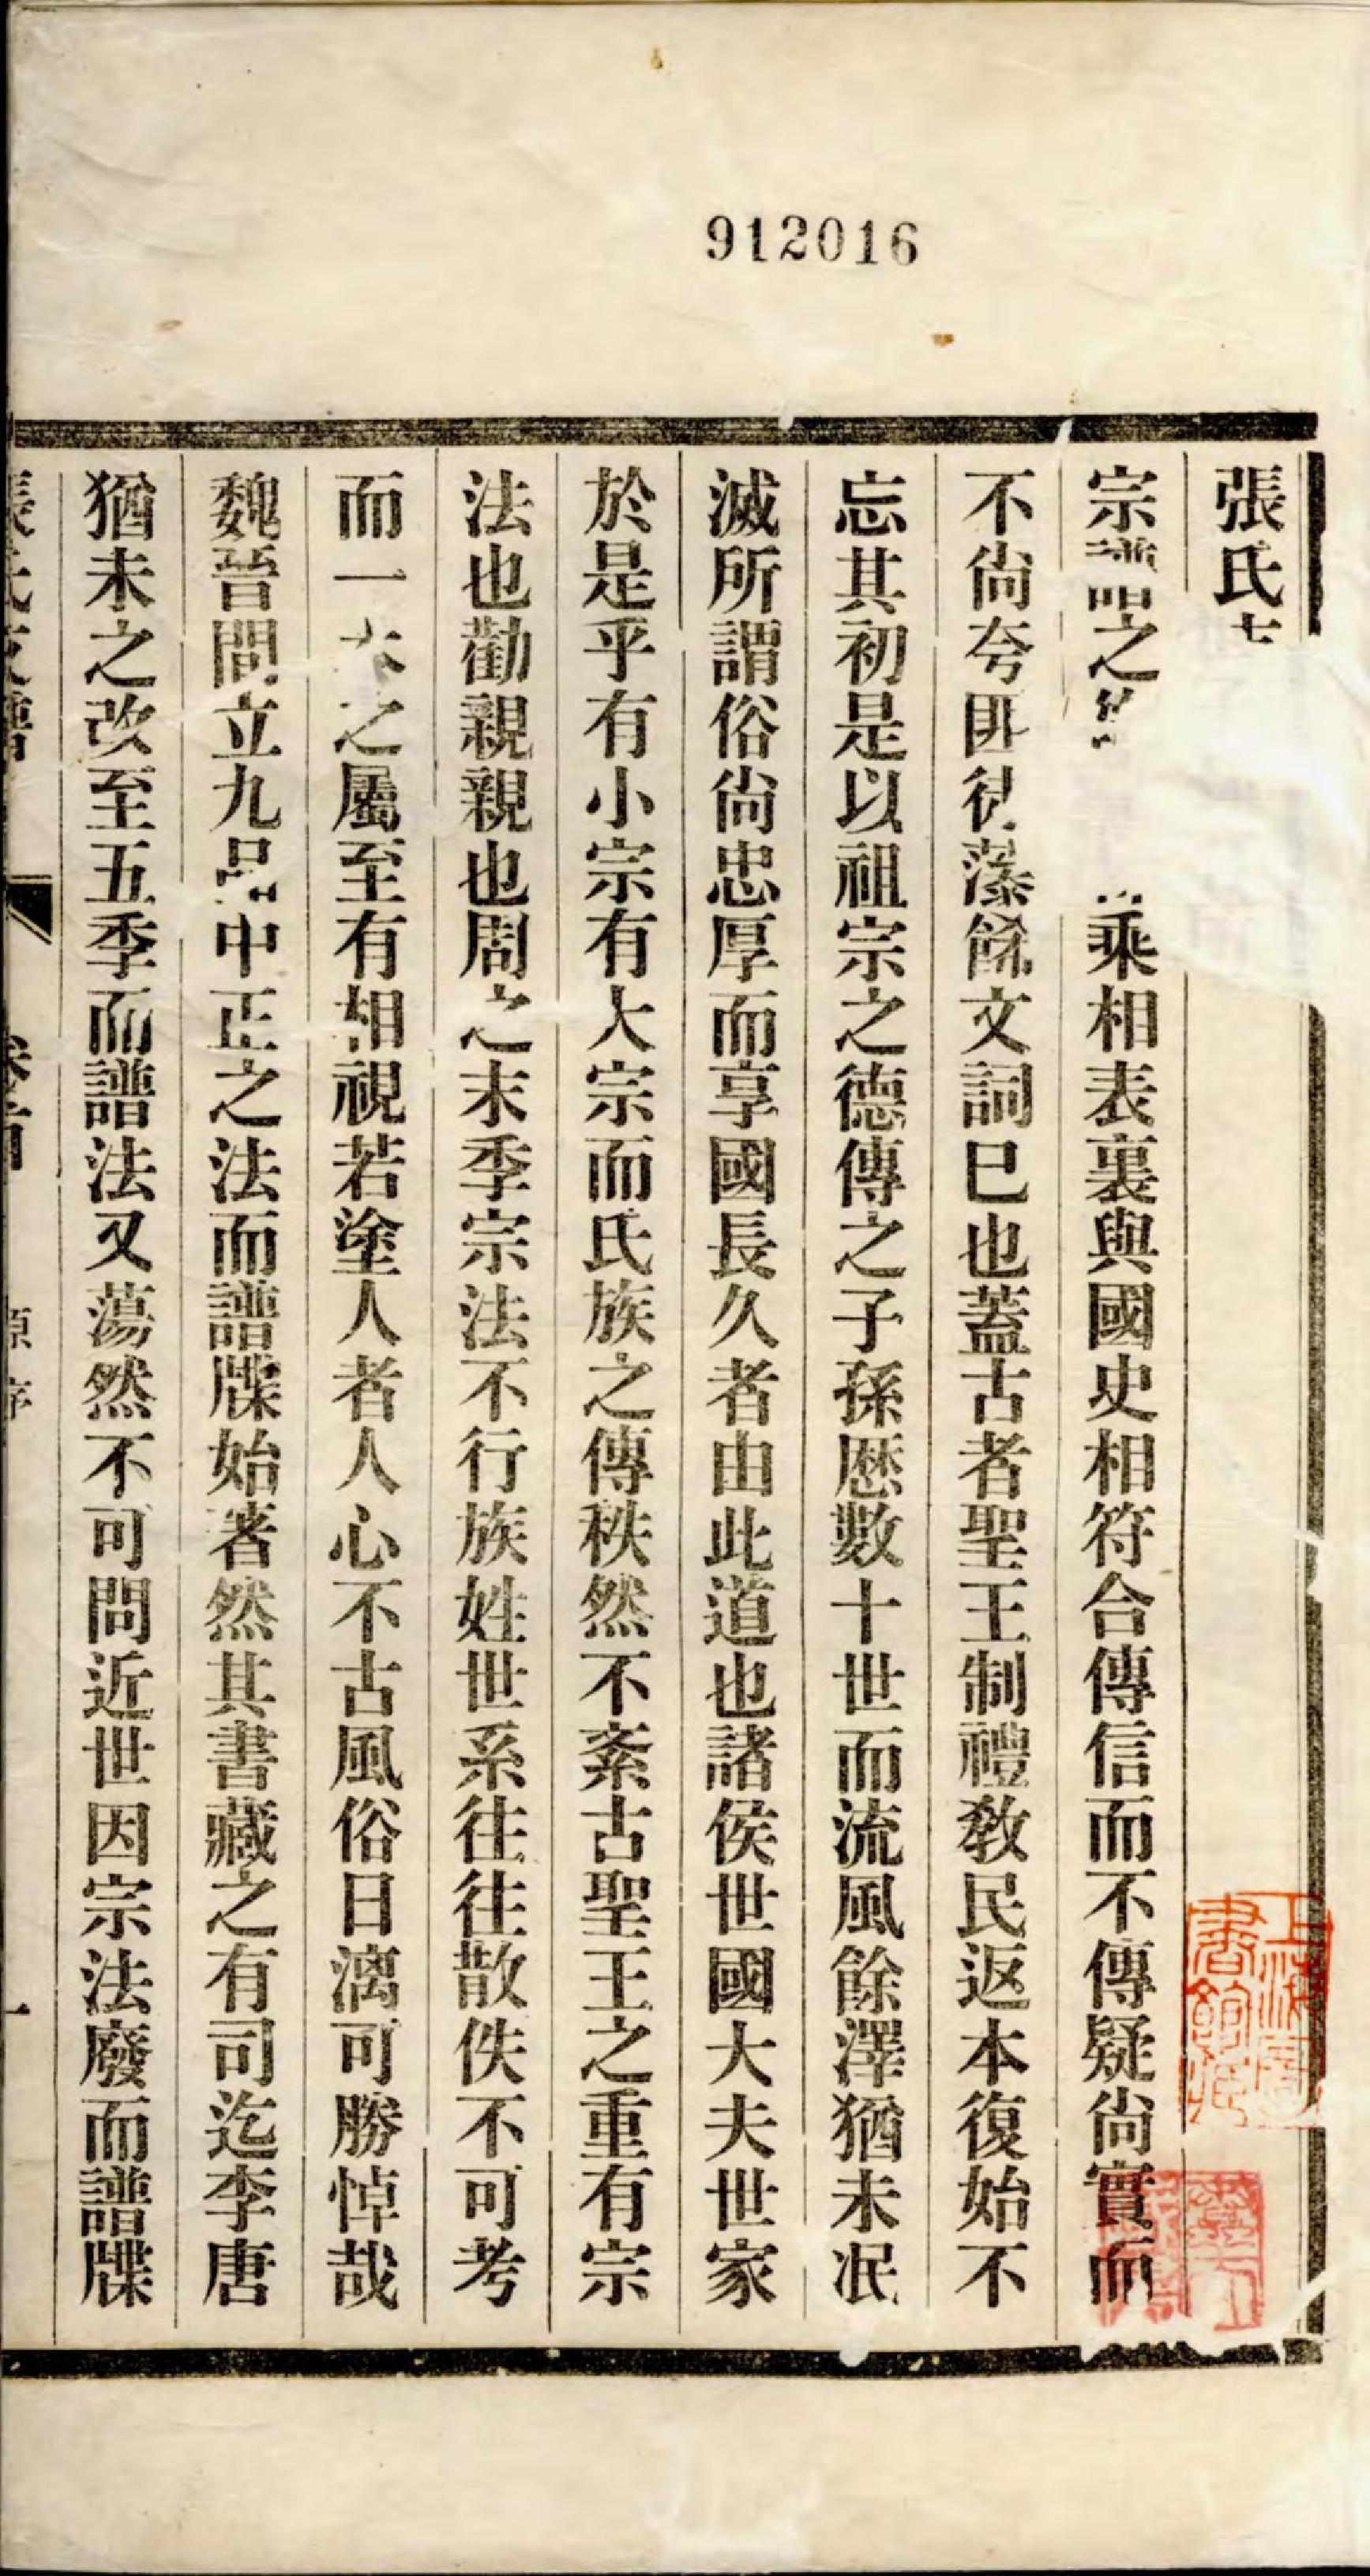 912016
張氏
宗譜之乘相表裏與國史相符合傳信而不傳疑尙實而
不尙夸匪徒藻餙文詞已也蓋古者聖王制禮敎民返本復始不
忘其初是以祖宗之德傳之子孫歷數十世而流風餘澤猶未泯
滅所謂俗尙忠厚而享國長久者由此道也諸侯世國大夫世家
於是乎有小宗有大宗而氏族之傳秩然不紊古聖王之重有宗
法也勸親親也周之末季宗法不行族姓世系往往散佚不可考
而一本之屬至有相視若塗人者人心不古風俗日漓可勝悼哉
魏晉間立九品中正之法而譜牒始著然其書藏之有司迄李唐
猶未之改至五季而譜法又蕩然不可問近世因宗法廢而譜牒
上海圖書館藏